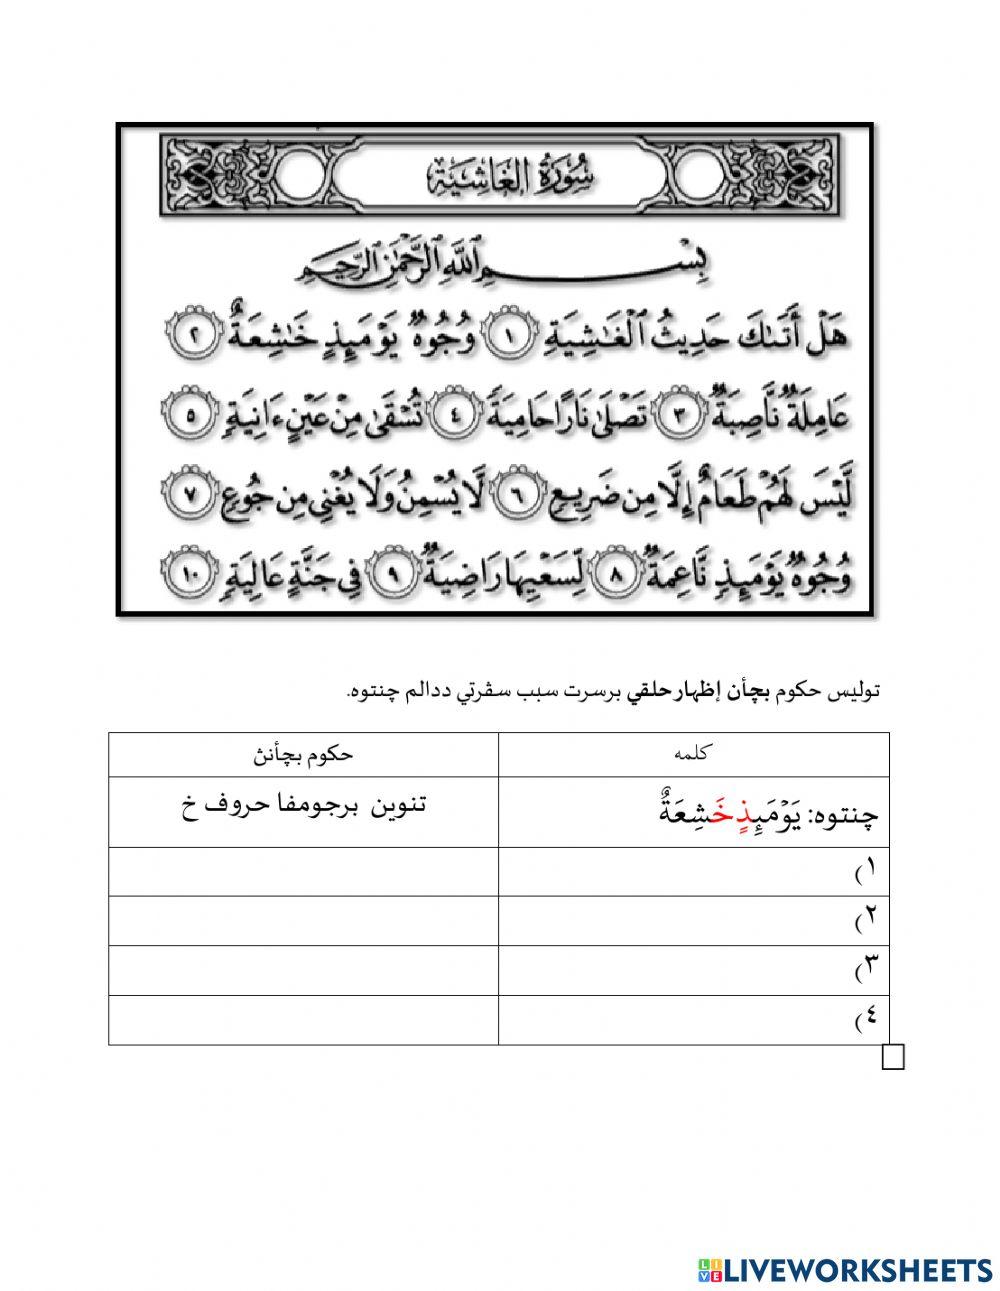 سُورَةُ الغَاشِيَة
بِسْمِ ٱللَّهِ ٱلرَّحْمَٰنِ ٱلرَّحِيمِ
هَلْ أَتَىٰكَ حَدِيثُ ٱلْغَٰشِيَةِ ١ وُجُوهٌ يَوْمَئِذٍ خَٰشِعَةٌ ٢
عَامِلَةٌ نَّاصِبَةٌ ٣ تَصْلَىٰ نَارًا حَامِيَةً ٤ تُسْقَىٰ مِنْ عَيْنٍ ءَانِيَةٍ ٥
لَّيْسَ لَهُمْ طَعَامٌ إِلَّا مِن ضَرِيعٍ ٦ لَّا يُسْمِنُ وَلَا يُغْنِي مِن جُوعٍ ٧
وُجُوهٌ يَوْمَئِذٍ نَّاعِمَةٌ ٨ لِّسَعْيِهَا رَاضِيَةٌ ٩ فِي جَنَّةٍ عَالِيَةٍ ١٠
توليس حكوم بچأن إظهار حلقي برسرت سبب سڤرتي ددالم چنتوه.
كلمه حكوم بچأنڽ
چنتوه: يَوْمَئِذٍ خَشِعَةٌ تنوين برجومفا حروف خ
١)
٢)
٣)
٤)
LIVEWORKSHEETS